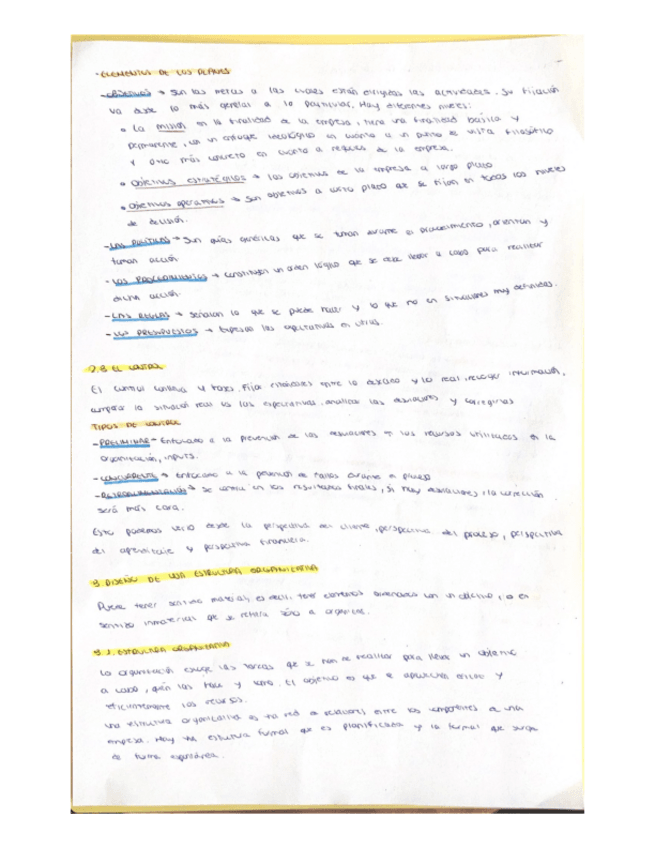 ·ELEMENTOS DE LOS PLANES
-OBJETIVOS → Son las metas a las cuales están dirigidas las actividades. Su fijación
va desde lo más general a lo particular. Hay diferentes niveles:
• La misión es la finalidad de la empresa, tiene una finalidad básica y
permanente, con un enfoque ideológico en cuanto a un punto de vista filosófico
y otro más concreto en cuanto a de la empresa.
• Objetivos estratégicos → los objetivos de la empresa a largo plazo
• Objetivos operativos → Son objetivos a corto plazo que se fijan en todos los niveles
de decisión.
-LAS POLÍTICAS → Son guías genéricas que se toman durante el procedimiento, orientan y
toman acción
-LOS PROCEDIMIENTOS → constituyen un orden lógico que se debe llevar a cabo para realizar
dicha acción.
-LAS REGLAS → señalan lo que se puede hacer y lo que no en situaciones muy definidas.
-LOS PRESUPUESTOS → Expresan las expectativas en cifras.
2.3 EL CONTROL
El control conlleva 4 fases. Fijar estándares entre lo deseado y lo real, recoger información,
comparar la situación real con las expectativas, analizar las desviaciones y corregirlas
TIPOS DE CONTROL
-PRELIMINAR - Enfocado a la prevención de las desviaciones en los recursos utilizados en la
organización, inputs.
-CONCURRENTE → enfocado a la prevención de fallos durante el proceso
-RETROALIMENTACIÓN → Se centra en los resultados finales, si hay desviaciones, la corrección
será más cara.
Esto podemos verlo desde la perspectiva del cliente, perspectiva del proceso, perspectiva
del aprendizaje y perspectiva financiera.
3. DISEÑO DE UNA ESTRUCTURA ORGANIZATIVA
Puede tener sentido material, es decir, tener elementos ordenados con un objetivo, o en
sentido inmaterial que se refiere sólo a organizar.
3.1. ESTRUCTURA ORGANIZATIVA
La organización las tareas que se han de realizar para llevar un objetivo
a cabo, quién las hace y cómo. El objetivo es que se aprovechen eficaz y
eficientemente los recursos.
una estructura organizativa es una red de relaciones entre los componentes de una
empresa. Hay una estructura formal que es planificada y la formal que surge
de forma espontánea.